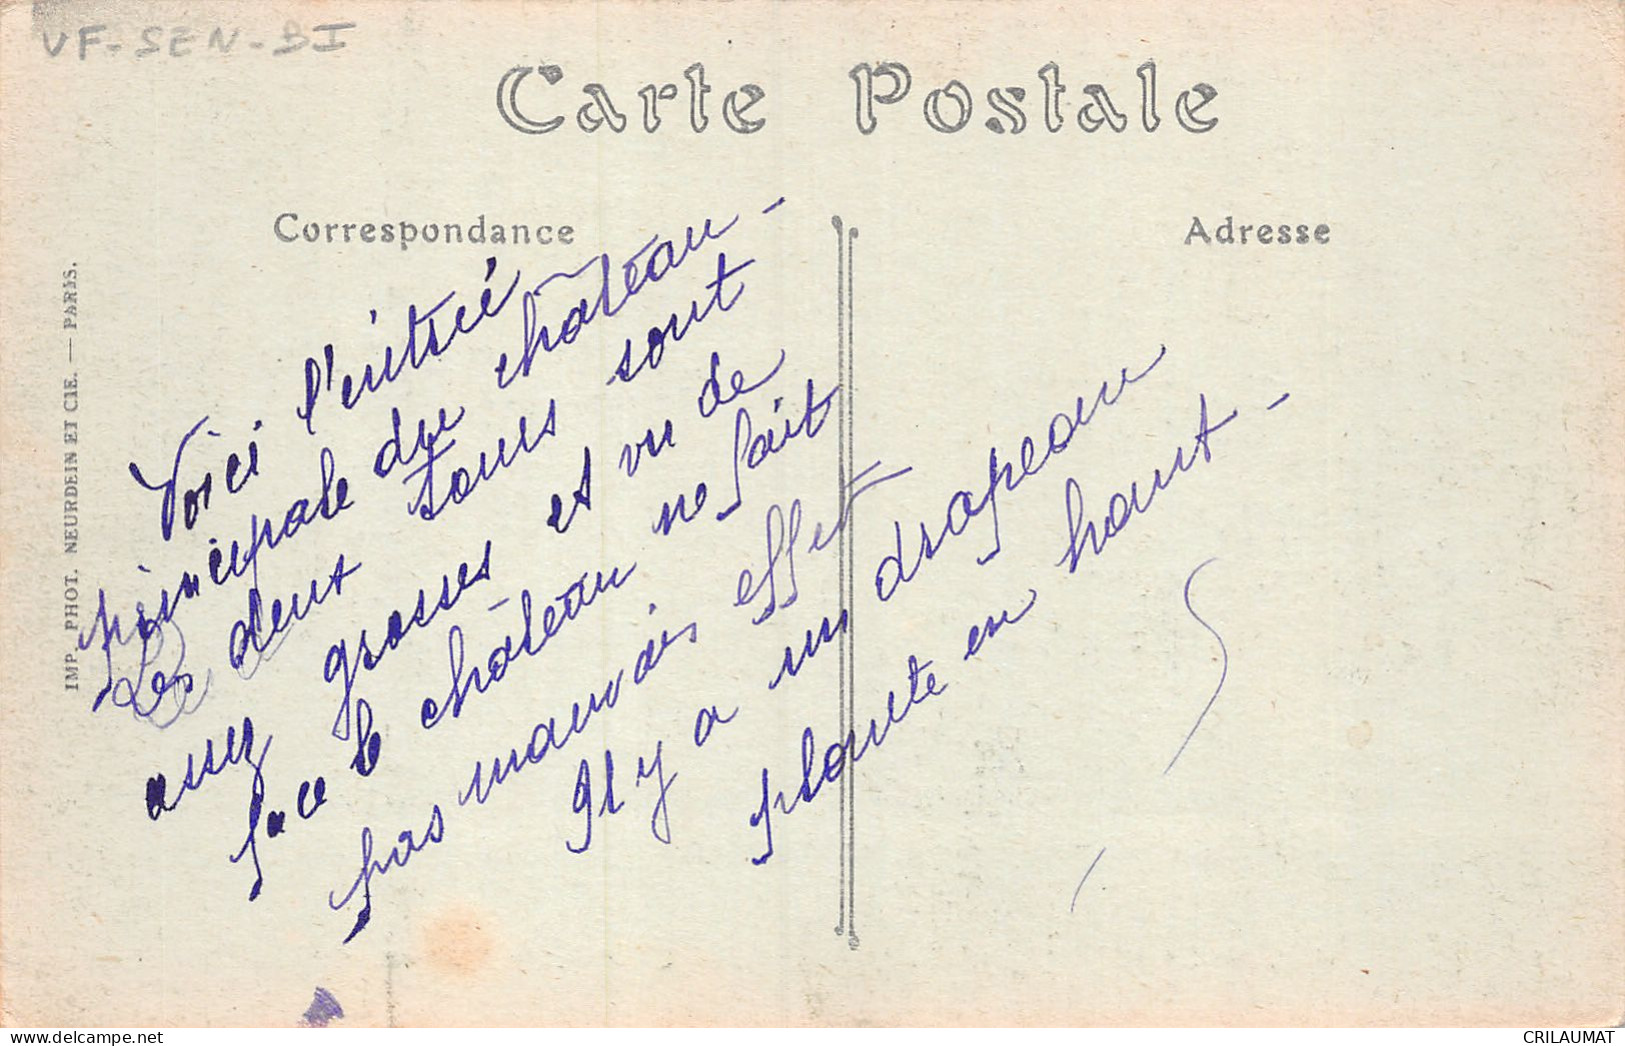 VF-SEN-BI
Carte Postale
Correspondance
Adresse
IMP. PHOT. NEURDEIN ET CIE. — PARIS.
Voici l'entrée
principale du château -
Les deux tours sont
assez grosses et vu de
face le château ne fait
pas mauvais effet
Il y a un drapeau
plante en haut -
CRILAUMAT